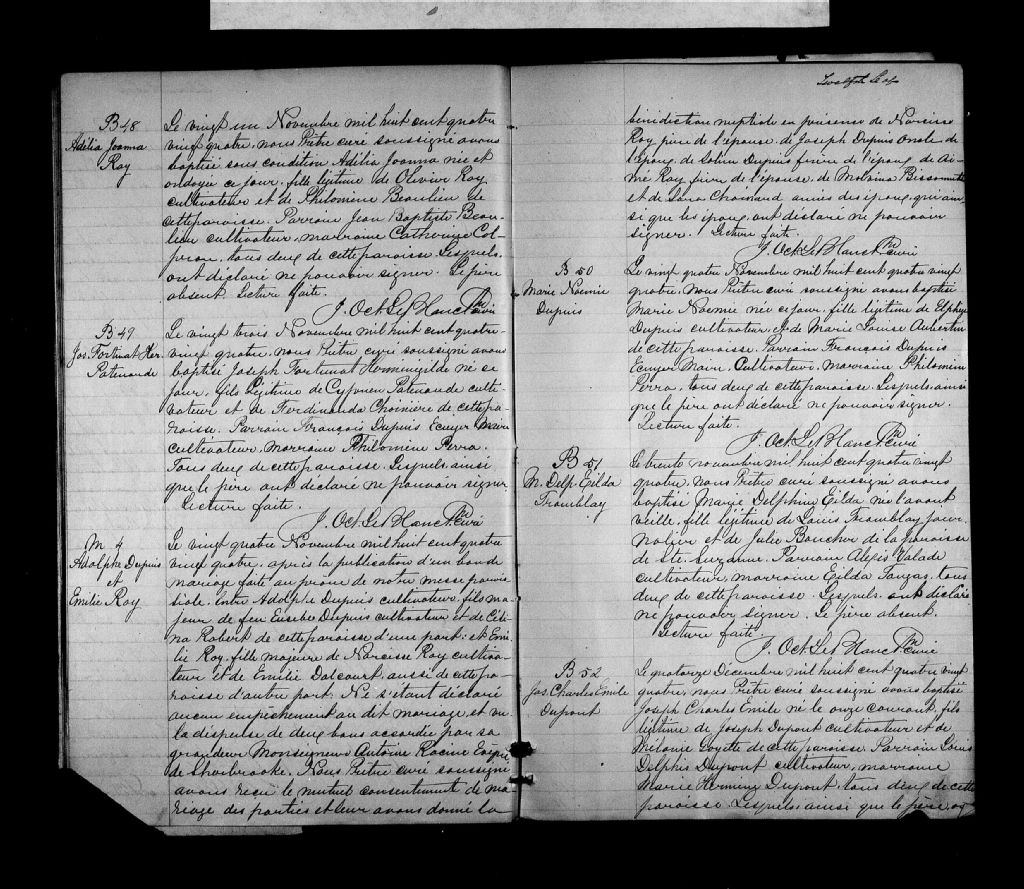 Twelfth leaf
B 48
Adélia Joanna
Roy
Le vingt un Novembre mil huit cent quatre
vingt quatre, nous Prêtre curé soussigné avons
baptisé sous condition Adélia Joanna née et
ondoyée ce jour, fille légitime de Olivier Roy
cultivateur et de Philomine Beaulieu de
cette paroisse. Parrain Jean Baptiste Beau-
lieu cultivateur, marraine Catherine
tous deux de cette paroisse. Lesquels
ont déclaré ne pouvoir signer. Le père
absent. Lecture faite.
J. Oct. LeBlanc Ptre curé
B 49
Jos. Fortunat Her.
Patenaude
Le vingt trois Novembre mil huit cent quatre-
vingt quatre, nous Prêtre curé soussigné avons
baptisé Joseph Fortunat Herménégilde né ce
jour, fils légitime de Cyprien Patenaude culti-
vateur et de Ferdinanda Choinière de cette pa-
roisse. Parrain François Dupuis Ecuyer Maire
cultivateur, Marraine Philomine Perra.
Tous deux de cette paroisse. Lesquels ainsi
que le père ont déclaré ne pouvoir signer
Lecture faite.
J. Oct. LeBlanc Ptre curé
M. 4
Adolphe Dupuis
et
Emilie Roy
Le vingt quatre Novembre mil huit cent quatre
vingt quatre, après la publication d'un banc de
mariage faite au prône de notre messe parois-
siale. Entre Adolphe Dupuis cultivateur, fils ma-
jeur de feu Eusèbe Dupuis cultivateur et de Céli-
na Robert de cette paroisse d'une part: et Emi-
lie Roy, fille majeure de Narcisse Roy cultiva-
teur et de Emilie Dalcourt, aussi de cette pa-
roisse d'autre part. Ne s'étant déclaré
aucun empêchement au dit mariage, et vu
la dispense de deux bans accordée par sa
grandeur Monseigneur Antoine Racine Evêque
de Sherbrooke. Nous Prêtre curé soussigné
avons reçu le mutuel consentement de ma-
riage des parties et leur avons donné la
bénédiction nuptiale en présence de Narcisse
Roy père de l'épouse, de Joseph Dupuis oncle de
l'époux, de Dupuis frère de l'époux, de Ai-
mé Roy frère de l'épouse, de Malvina Bissonnette
et de Sara Choinard amies des époux, qui ain-
si que les époux ont déclaré ne pouvoir
signer. Lecture faite.
J. Oct. LeBlanc Ptre curé
B 50
Marie Noemie
Dupuis
Le vingt quatre Novembre mil huit cent quatre vingt
quatre, Nous Prêtre curé soussigné avons baptisé
Marie Noemie née ce jour, fille légitime de Elphège
Dupuis cultivateur et de Marie Louise Aubertin
de cette paroisse. Parrain François Dupuis
Ecuyer Maire, Cultivateur. Marraine Philomine
Perra, tous deux de cette paroisse. Lesquels ainsi
que le père ont déclaré ne pouvoir signer.
Lecture faite.
J. Oct. LeBlanc Ptre curé
B 51
M. Delp. Exilda
Tromblay
Le trente novembre mil huit cent quatre vingt
quatre, nous Prêtre curé soussigné avons
baptisé Marie Delphine Exilda née l'avant
veille, fille légitime de Louis Tromblay jour-
nalier et de Julie Boucher de la paroisse
de Ste. Suzanne. Parrain Alexis Valade
cultivateur, marraine Exilda tous
deux de cette paroisse. Lesquels ont déclaré
ne pouvoir signer. Le père absent.
Lecture faite.
J. Oct. LeBlanc Ptre curé
B 52
Jos. Charles Emile
Dupont
Le quatorze Décembre mil huit cent quatre vingt
quatre, nous Prêtre curé soussigné avons baptisé
Joseph Charles Emile né le onze courant, fils
légitime de Joseph Dupont cultivateur et de
Mélanie Goyette de cette paroisse. Parrain Louis
Delphis Dupont cultivateur, marraine
Marie Dupont tous deux de cette
paroisse. Lesquels ainsi que le père, on